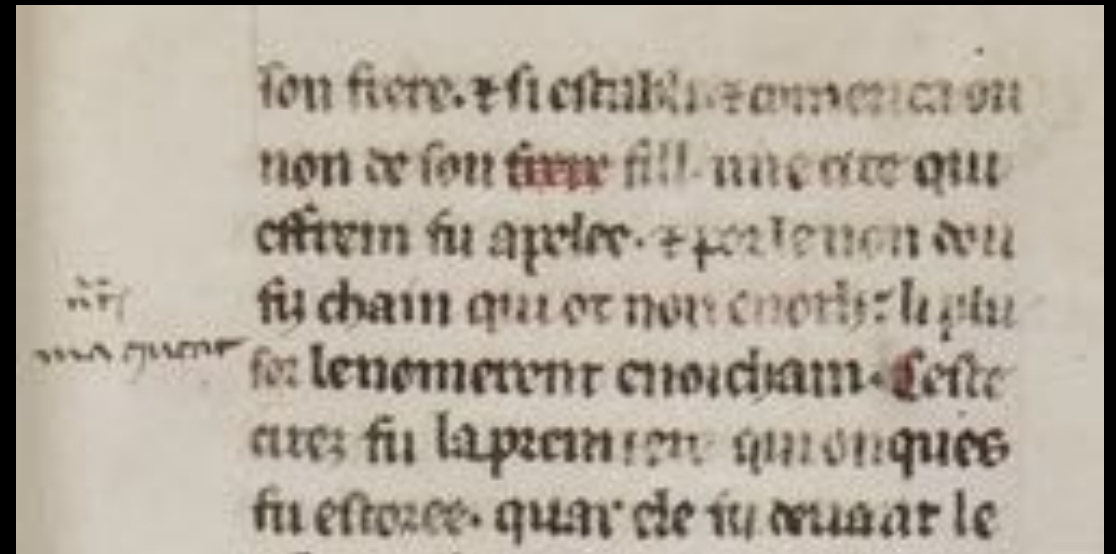 son frere. ⁊ si establi. ⁊ comenca ou
non de son frere fill. une cite qui
effrem fu apelee. ⁊ por le non dou
fu chain qui ot non enoth: li plu
sor le nomerent enoicham. Ceste
citez fu la premiere qui onques
fu estoree. quar ele fu devant le